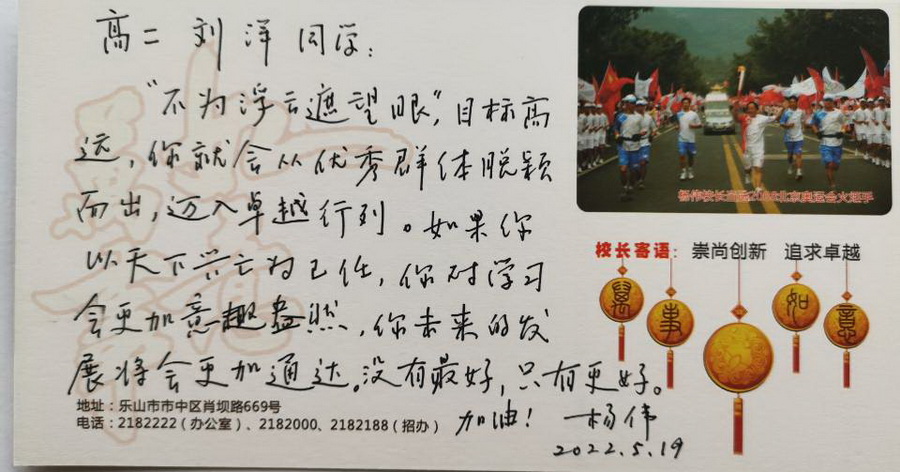 高二 刘洋同学：
“不为浮云遮望眼”，目标高
远，你就会从优秀群体脱颖
而出，迈入卓越行列。如果你
以天下兴亡为己任，你对学习
会更加意趣盎然，你未来的发
展将会更加通达。没有最好，只有更好。
加油！ 杨伟
2022.5.19
杨伟校长当选2008北京奥运会火炬手
校长寄语：崇尚创新 追求卓越
萬 事 如 意
地址：乐山市市中区肖坝路669号
电话：2182222（办公室）、2182000、2182188（招办）